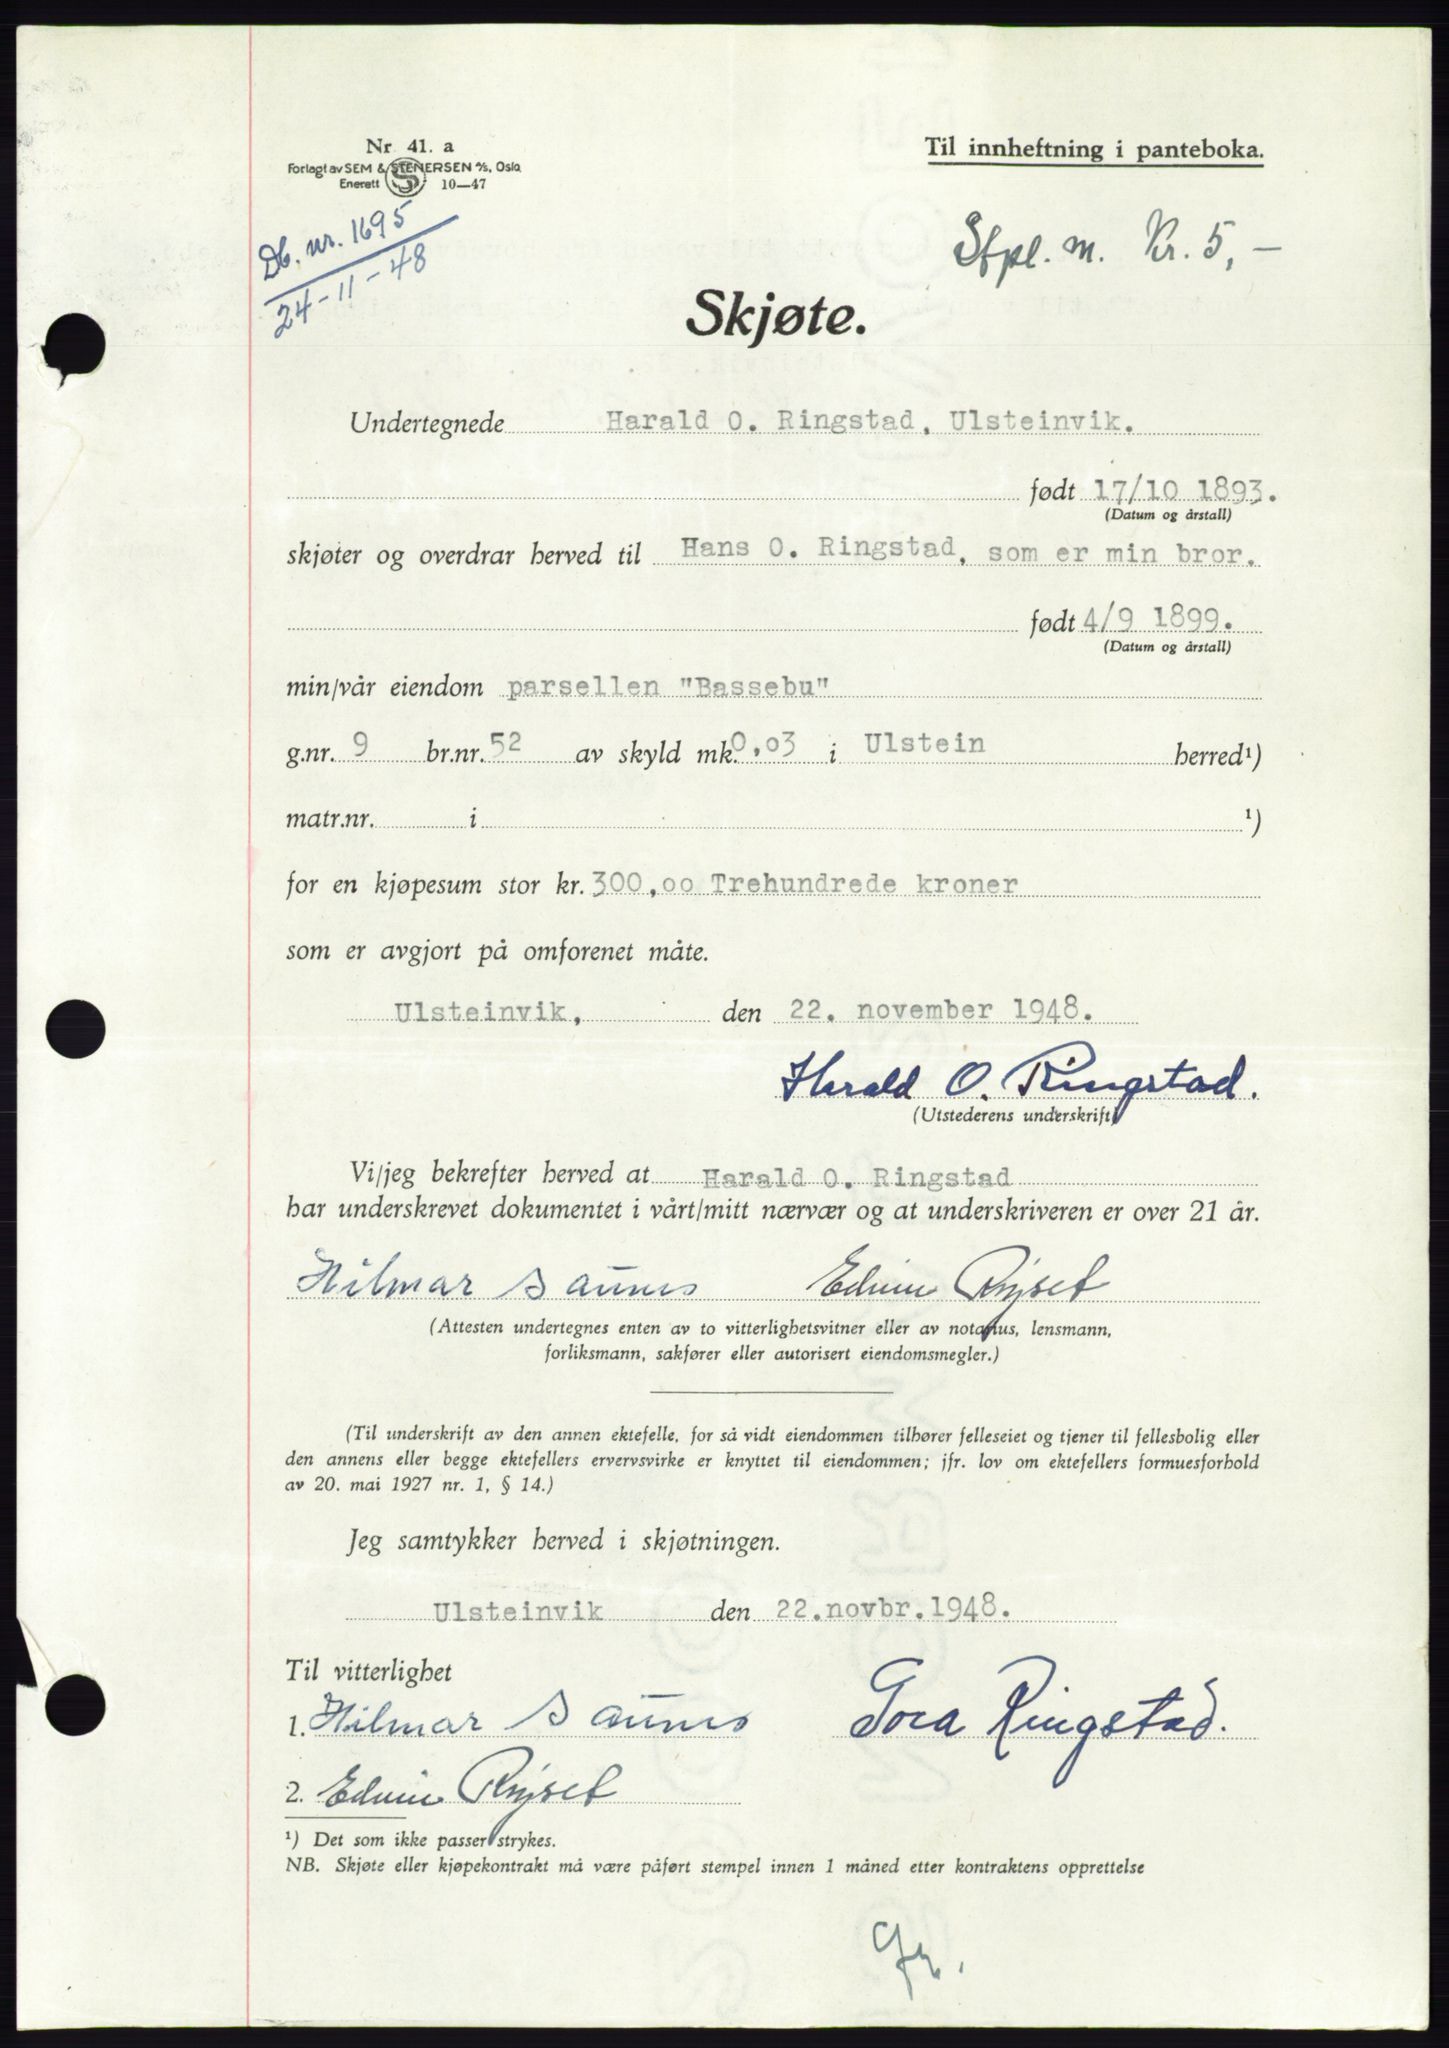 Nr 41. a
Forlagt av SEM & STENERSEN A/S, Oslo
Enerett 10—47
Til innheftning i panteboka.
Db. nr. 1695
24-11-48
Stpl. m. Kr. 5,-
Skjøte.
Undertegnede Harald O. Ringstad, Ulsteinvik.
født 17/10 1893.
(Datum og årstall)
skjøter og overdrar herved til Hans O. Ringstad, som er min bror.
født 4/9 1899.
(Datum og årstall)
min/vår eiendom parsellen "Bassebu"
g.nr. 9 br.nr. 52 av skyld mk. 0,03 i Ulstein herred¹)
matr.nr. i ¹)
for en kjøpesum stor kr. 300,00 Trehundrede kroner
som er avgjort på omforenet måte.
Ulsteinvik, den 22. november 1948.
Harald O. Ringstad.
(Utstederens underskrift)
Vi/jeg bekrefter herved at Harald O. Ringstad
har underskrevet dokumentet i vårt/mitt nærvær og at underskriveren er over 21 år.
Hilmar Saunes Edvin Røyset
(Attesten undertegnes enten av to vitterlighetsvitner eller av notarius, lensmann,
forliksmann, sakfører eller autorisert eiendomsmegler.)
(Til underskrift av den annen ektefelle, for så vidt eiendommen tilhører felleseiet og tjener til fellesbolig eller
den annens eller begge ektefellers ervervsvirke er knyttet til eiendommen; jfr. lov om ektefellers formuesforhold
av 20. mai 1927 nr. 1, § 14.)
Jeg samtykker herved i skjøtningen.
Ulsteinvik den 22.novbr.1948.
Til vitterlighet
1. Hilmar Saunes Tora Ringstad.
2. Edvin Røyset
¹) Det som ikke passer strykes.
NB. Skjøte eller kjøpekontrakt må være påført stempel innen 1 måned etter kontraktens opprettelse